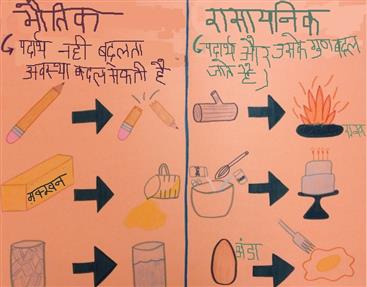 भौतिक
पदार्थ नही बदलता
अवस्था बदल सकती है
मक्खन
रासायनिक
पदार्थ और उसके गुण बदल
जाते है।
अंडा